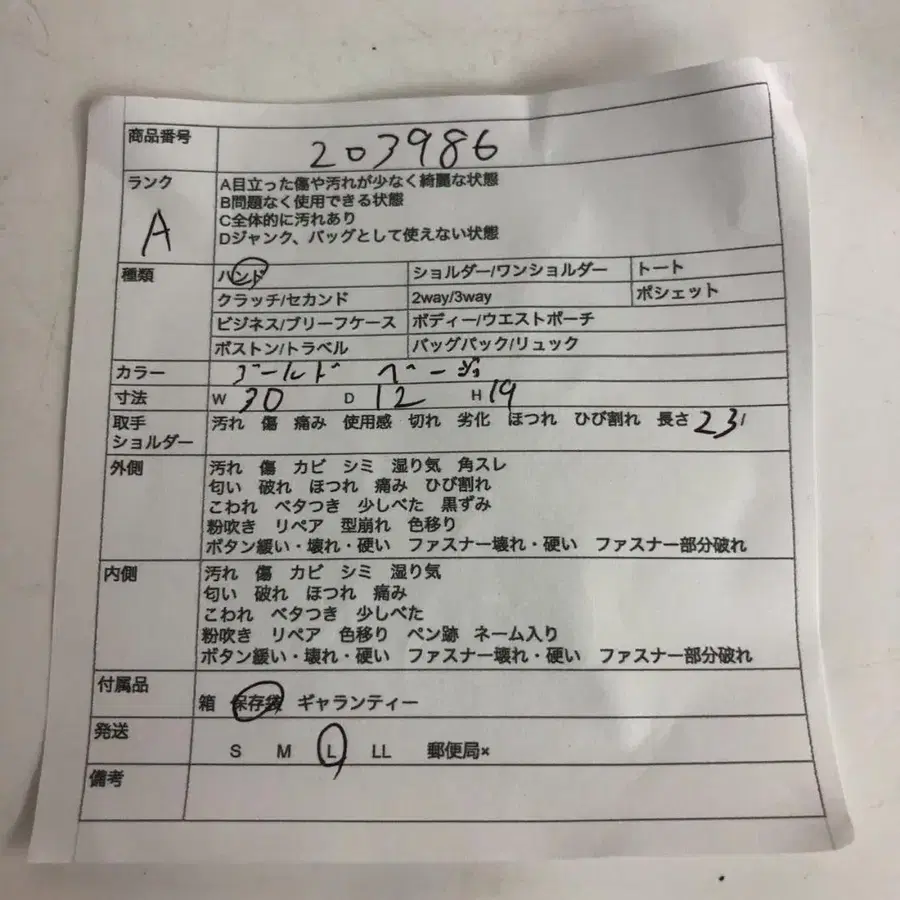 商品番号 203986
ランク A目立った傷や汚れが少なく綺麗な状態
B問題なく使用できる状態
A C全体的に汚れあり
Dジャンク、バッグとして使えない状態
種類 ハンド ショルダー/ワンショルダー トート
クラッチ/セカンド 2way/3way ポシェット
ビジネス/ブリーフケース ボディー/ウエストポーチ
ボストン/トラベル バッグパック/リュック
カラー ゴールド ベージュ
寸法 W 30 D 12 H 19
取手 汚れ 傷 痛み 使用感 切れ 劣化 ほつれ ひび割れ 長さ 23
ショルダー
外側 汚れ 傷 カビ シミ 湿り気 角スレ
匂い 破れ ほつれ 痛み ひび割れ
こわれ ベタつき 少しべた 黒ずみ
粉吹き リペア 型崩れ 色移り
ボタン緩い・壊れ・硬い ファスナー壊れ・硬い ファスナー部分破れ
内側 汚れ 傷 カビ シミ 湿り気
匂い 破れ ほつれ 痛み
こわれ ベタつき 少しべた
粉吹き リペア 色移り ペン跡 ネーム入り
ボタン緩い・壊れ・硬い ファスナー壊れ・硬い ファスナー部分破れ
付属品 箱 保存袋 ギャランティー
発送 S M L LL 郵便局×
備考